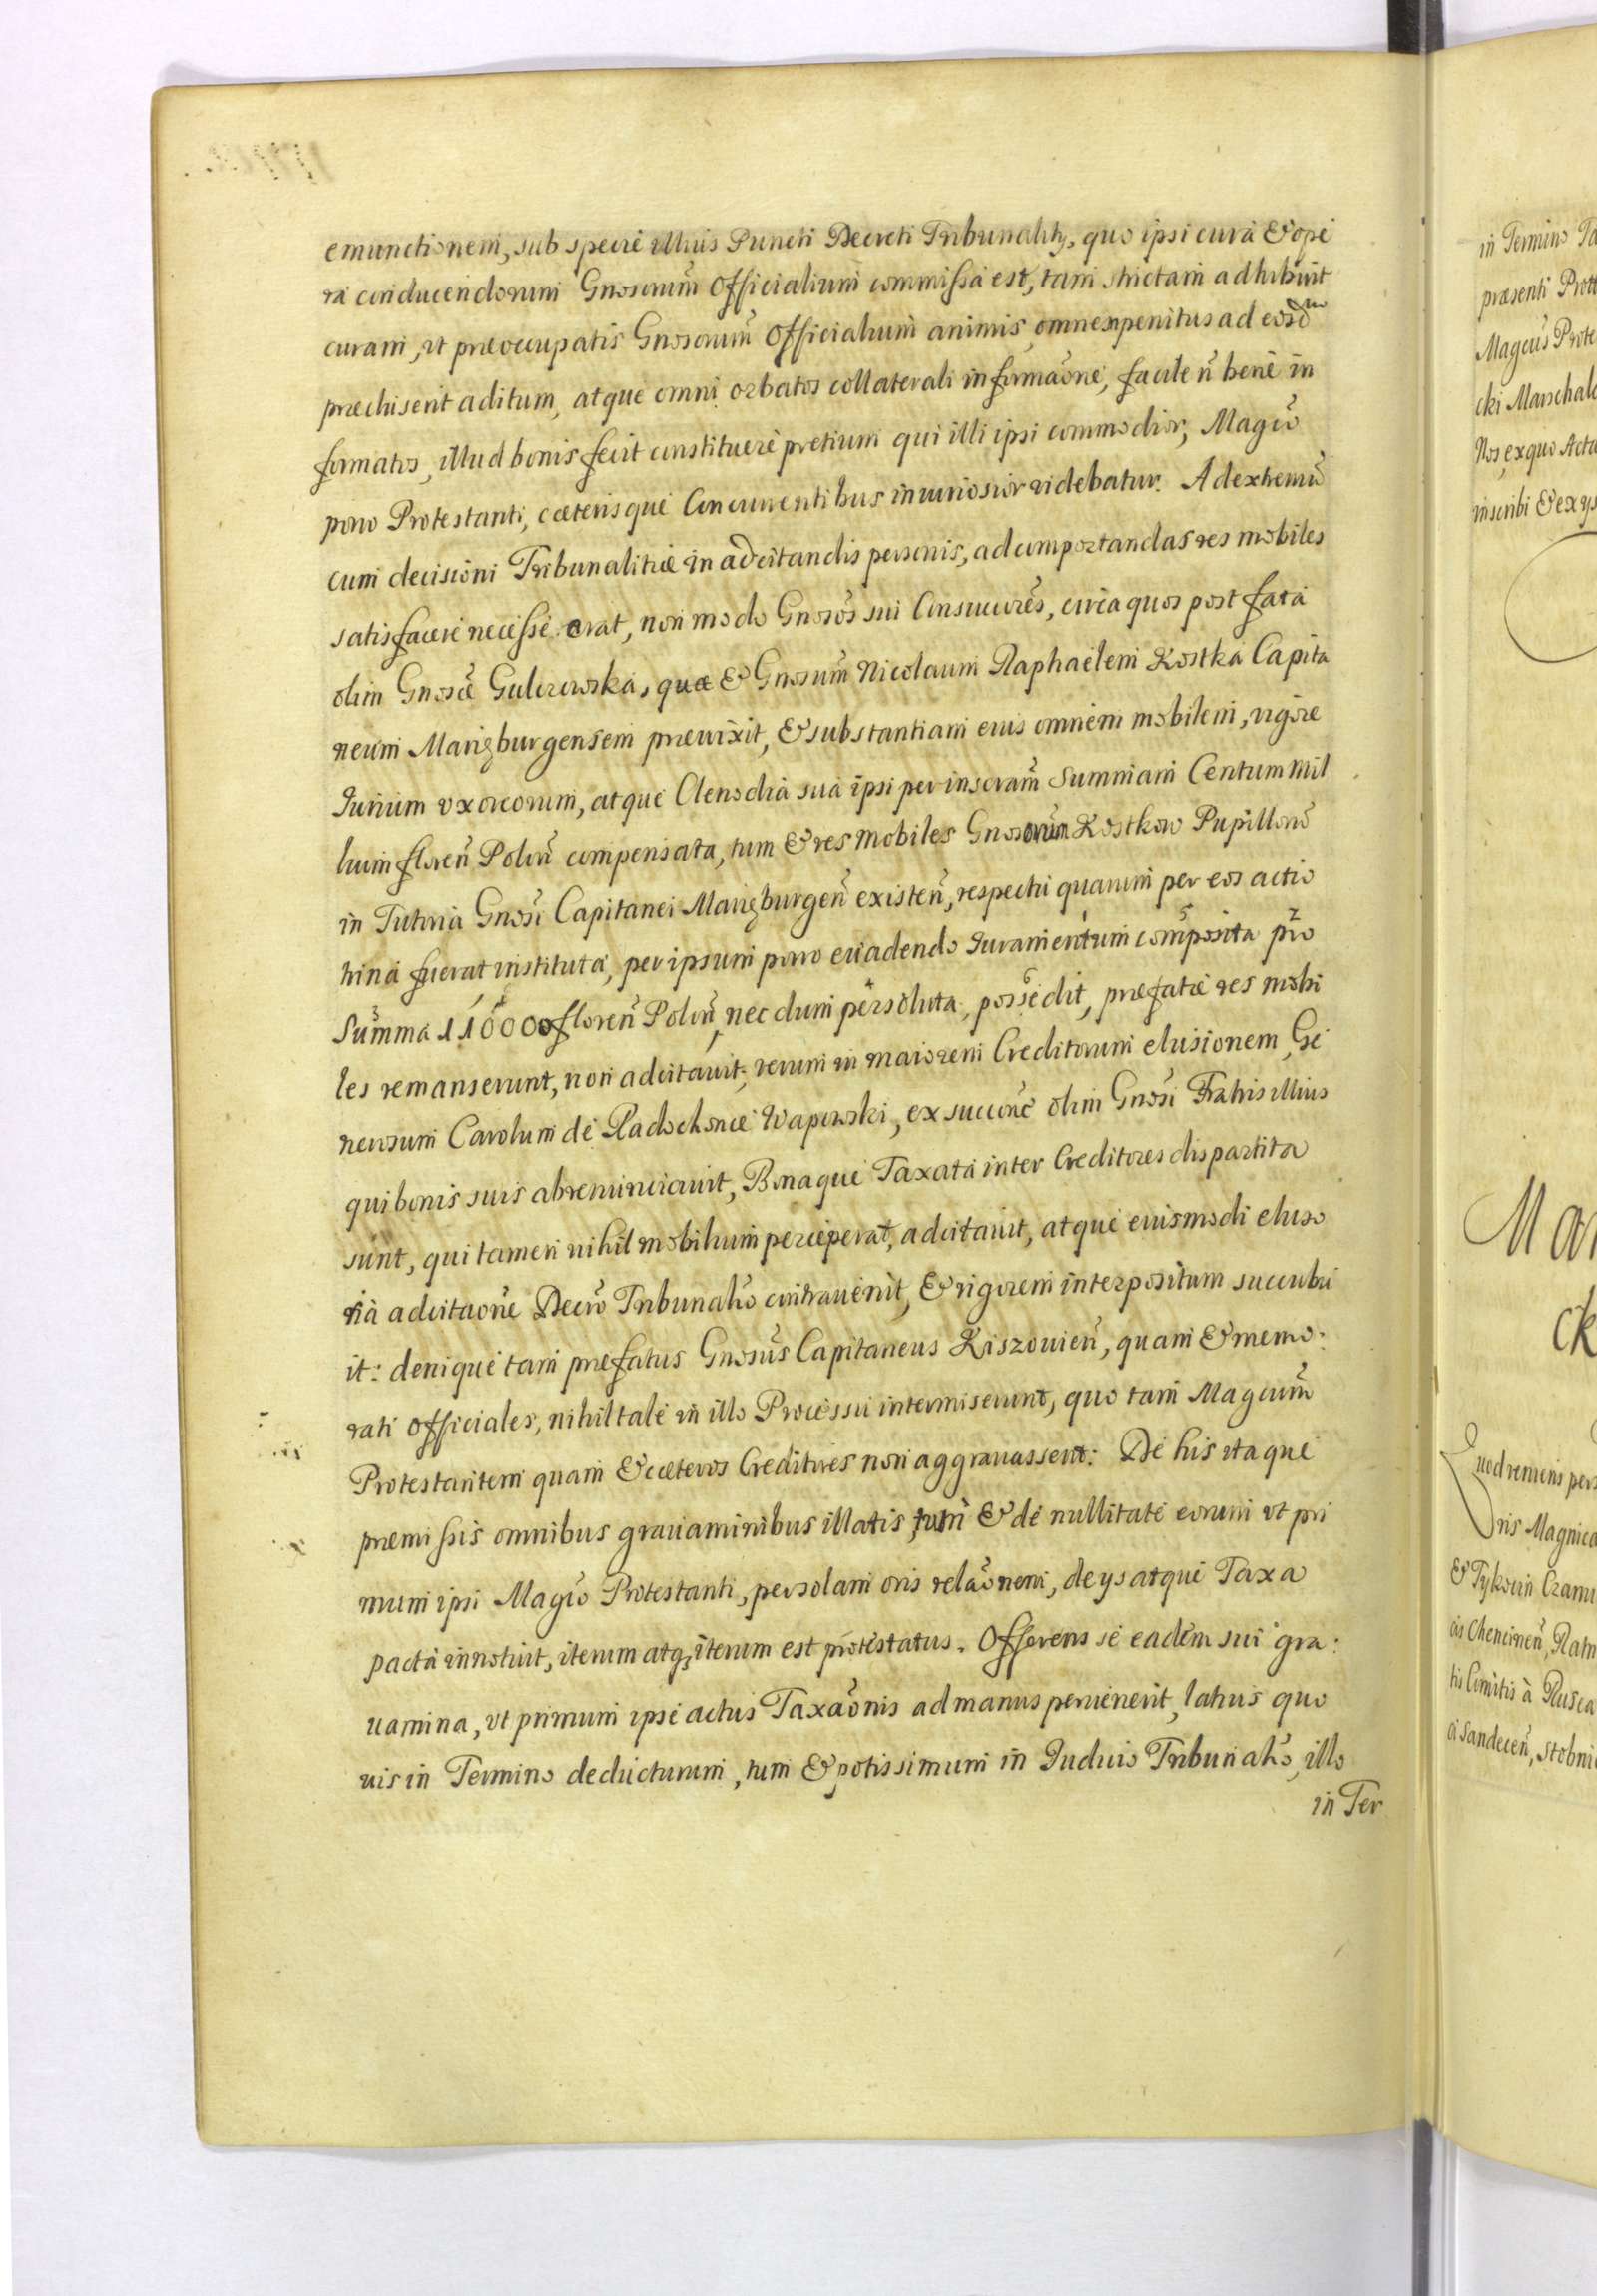 emunctionem, sub specie illius Puncti Decreti Tribunalitÿ, quo ipsi cura & ope
ra conducendorum Gnosorum̃ Officialium commissa est, tam strictam adhibuit
curam, vt præoccupatis Gnosorum̃ Officialium animis, omnem penitus ad eosdm
præcluserit aditum, atque omni orbatos collaterali informaõne, facile ñ bene in
formatos, illud bonis fecit constituere pretium qui illi ipsi commodior, Magco
porro Protestanti, cæterisque Concurrentibus iniuriosior videbatur. Ad extremũ
cum decisioni Tribunalitiæ in adcitandis personis, ad comportandas res mobiles
satisfacere necesse erat, non modo Gnosos sui Consuccores, circa quos post fata
olim Gnosæ Gulczewska, quæ & Gnosum Nicolaum Raphaelem Kostka Capita
neum Mariæburgensem præuixit, & substantiam eius omnem mobilem, vigore
Iurium vxoreorum, atque Clenodia sua ipsi per inscram̃ Summam Centum Mil
lium floreñ Poloñ compensata, tum & res mobiles Gnosorum Kostkow Pupillorũ
in Tutoria Gnosi Capitanei Mariæburgeñ existeñ, respectu quarum per eos actio
hina fuerat instituta, per ipsum porro euadendo Iuramentum composita pro
Summa 110000 floreñ Poloñ, nec dum persoluta, possedit, præfatæ res mobi
les remanserunt, non adcitauit; verum in maiorem Creditorum elusionem, Ge
nerosum Carolum de Radochonce Wapowski, ex succone olim Gnosi Fratris illius
qui bonis suis abrenunciauit, Bonaque Taxata inter Creditores dispartita
sunt, qui tamen nihil mobilium perceperat, adcitauit, atque eiusmodi eluso
ria adcitaone Decro Tribunalio contrauenit, & rigorem interpositum succubu
it: denique tam præfatus Gnosus Capitaneus Kiszouieñ, quam & memo:
rati Officiales, nihil tale in illo Processu intermiserunt, quo tam Magcum̃
Protestantem quam & cæteros Creditores non aggrauassent: De his itaque
præmissis omnibus grauaminibus illatis, tum & de nullitate eorum vt pri
mum ipsi Magco Protestanti, per solam oris relaõnem, de ijs atque Taxa
pacta innotuit, iterum atqʒ iterum est protestatus. Offerens se eadem sui gra:
uamina, vt primum ipse actus Taxaõnis ad manus peruenerit, latius quo
uis in Termino deducturum, tum & potissimum in Iudicio Tribunalio, illo
in Ter
in Termino Ta
præsenti Prot
Magcus Prote
cki Marschalc
Nos, ex quo Actu
inscribi & ex ijs
Mar
ck
Quod veniens pers
ris Magnica
& Tykocin Czarni
cis Chencineñ, Ratn
tis Comitis à Rusca
ci Sandeceñ, Stobni